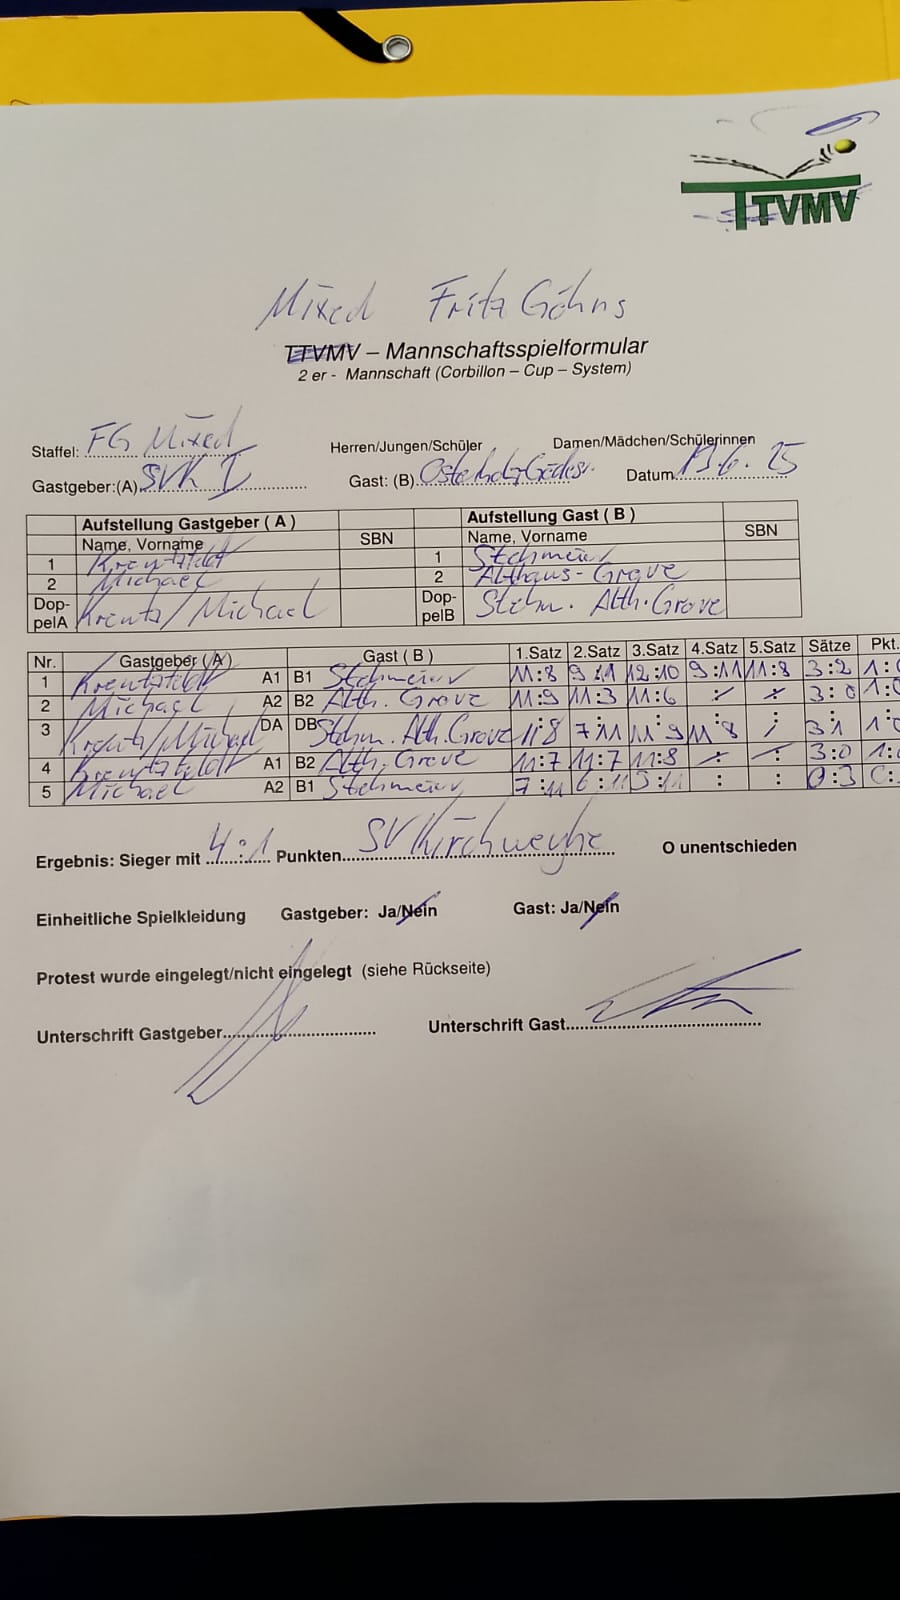 TTVMV
Mixed Fritz Göhns
TTVMV – Mannschaftsspielformular
2 er - Mannschaft (Corbillon – Cup – System)
Staffel: FG Mixed Herren/Jungen/Schüler Damen/Mädchen/Schülerinnen
Gastgeber:(A) SVK I Gast: (B) Datum 13.6.25
Aufstellung Gastgeber ( A ) Aufstellung Gast ( B )
Name, Vorname SBN Name, Vorname SBN
1 Kreutzfeldt 1 Stehmeier
2 Michael 2 Althaus-Grove
Dop-pelA Kreutz/Michael Dop-pelB Stehm. Alth.Grove
Nr. Gastgeber (A) Gast ( B ) 1.Satz 2.Satz 3.Satz 4.Satz 5.Satz Sätze Pkt.
1 Kreutzfeldt A1 B1 Stehmeier 11:8 9:11 12:10 9:11 11:8 3:2 1:0
2 Michael A2 B2 Alth. Grove 11:9 11:3 11:6 : : 3:0 1:0
3 Kreutz/Michael DA DB Stehm. Alth.Grove 11:8 7:11 11:9 11:8 : 3:1 1:0
4 Kreutzfeldt A1 B2 Alth. Grove 11:7 11:7 11:8 : : 3:0 1:0
5 Michael A2 B1 Stehmeier 7:11 6:11 5:11 : : 0:3 0:
Ergebnis: Sieger mit 4:1 Punkten SV Kirchweyhe O unentschieden
Einheitliche Spielkleidung Gastgeber: Ja/Nein Gast: Ja/Nein
Protest wurde eingelegt/nicht eingelegt (siehe Rückseite)
Unterschrift Gastgeber Unterschrift Gast